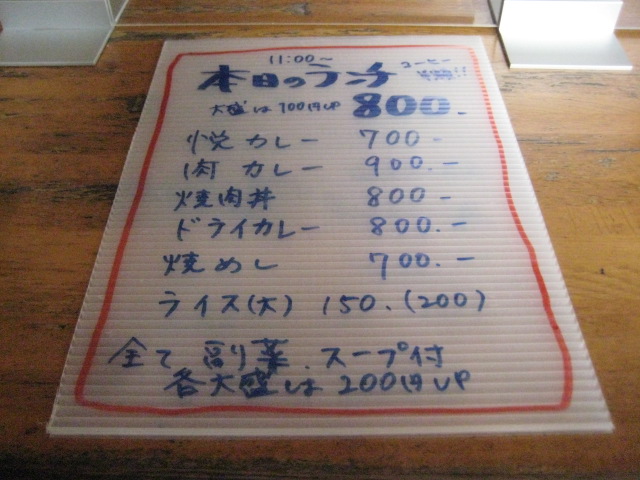 11:00〜
コーヒー
本日のランチ 800.
大盛は100円UP
悦カレー 700-
肉カレー 900.-
焼肉丼 800-
ドライカレー 800.-
焼めし 700.-
ライス(大) 150.(200)
全て副菜.スープ付
各大盛は200円UP